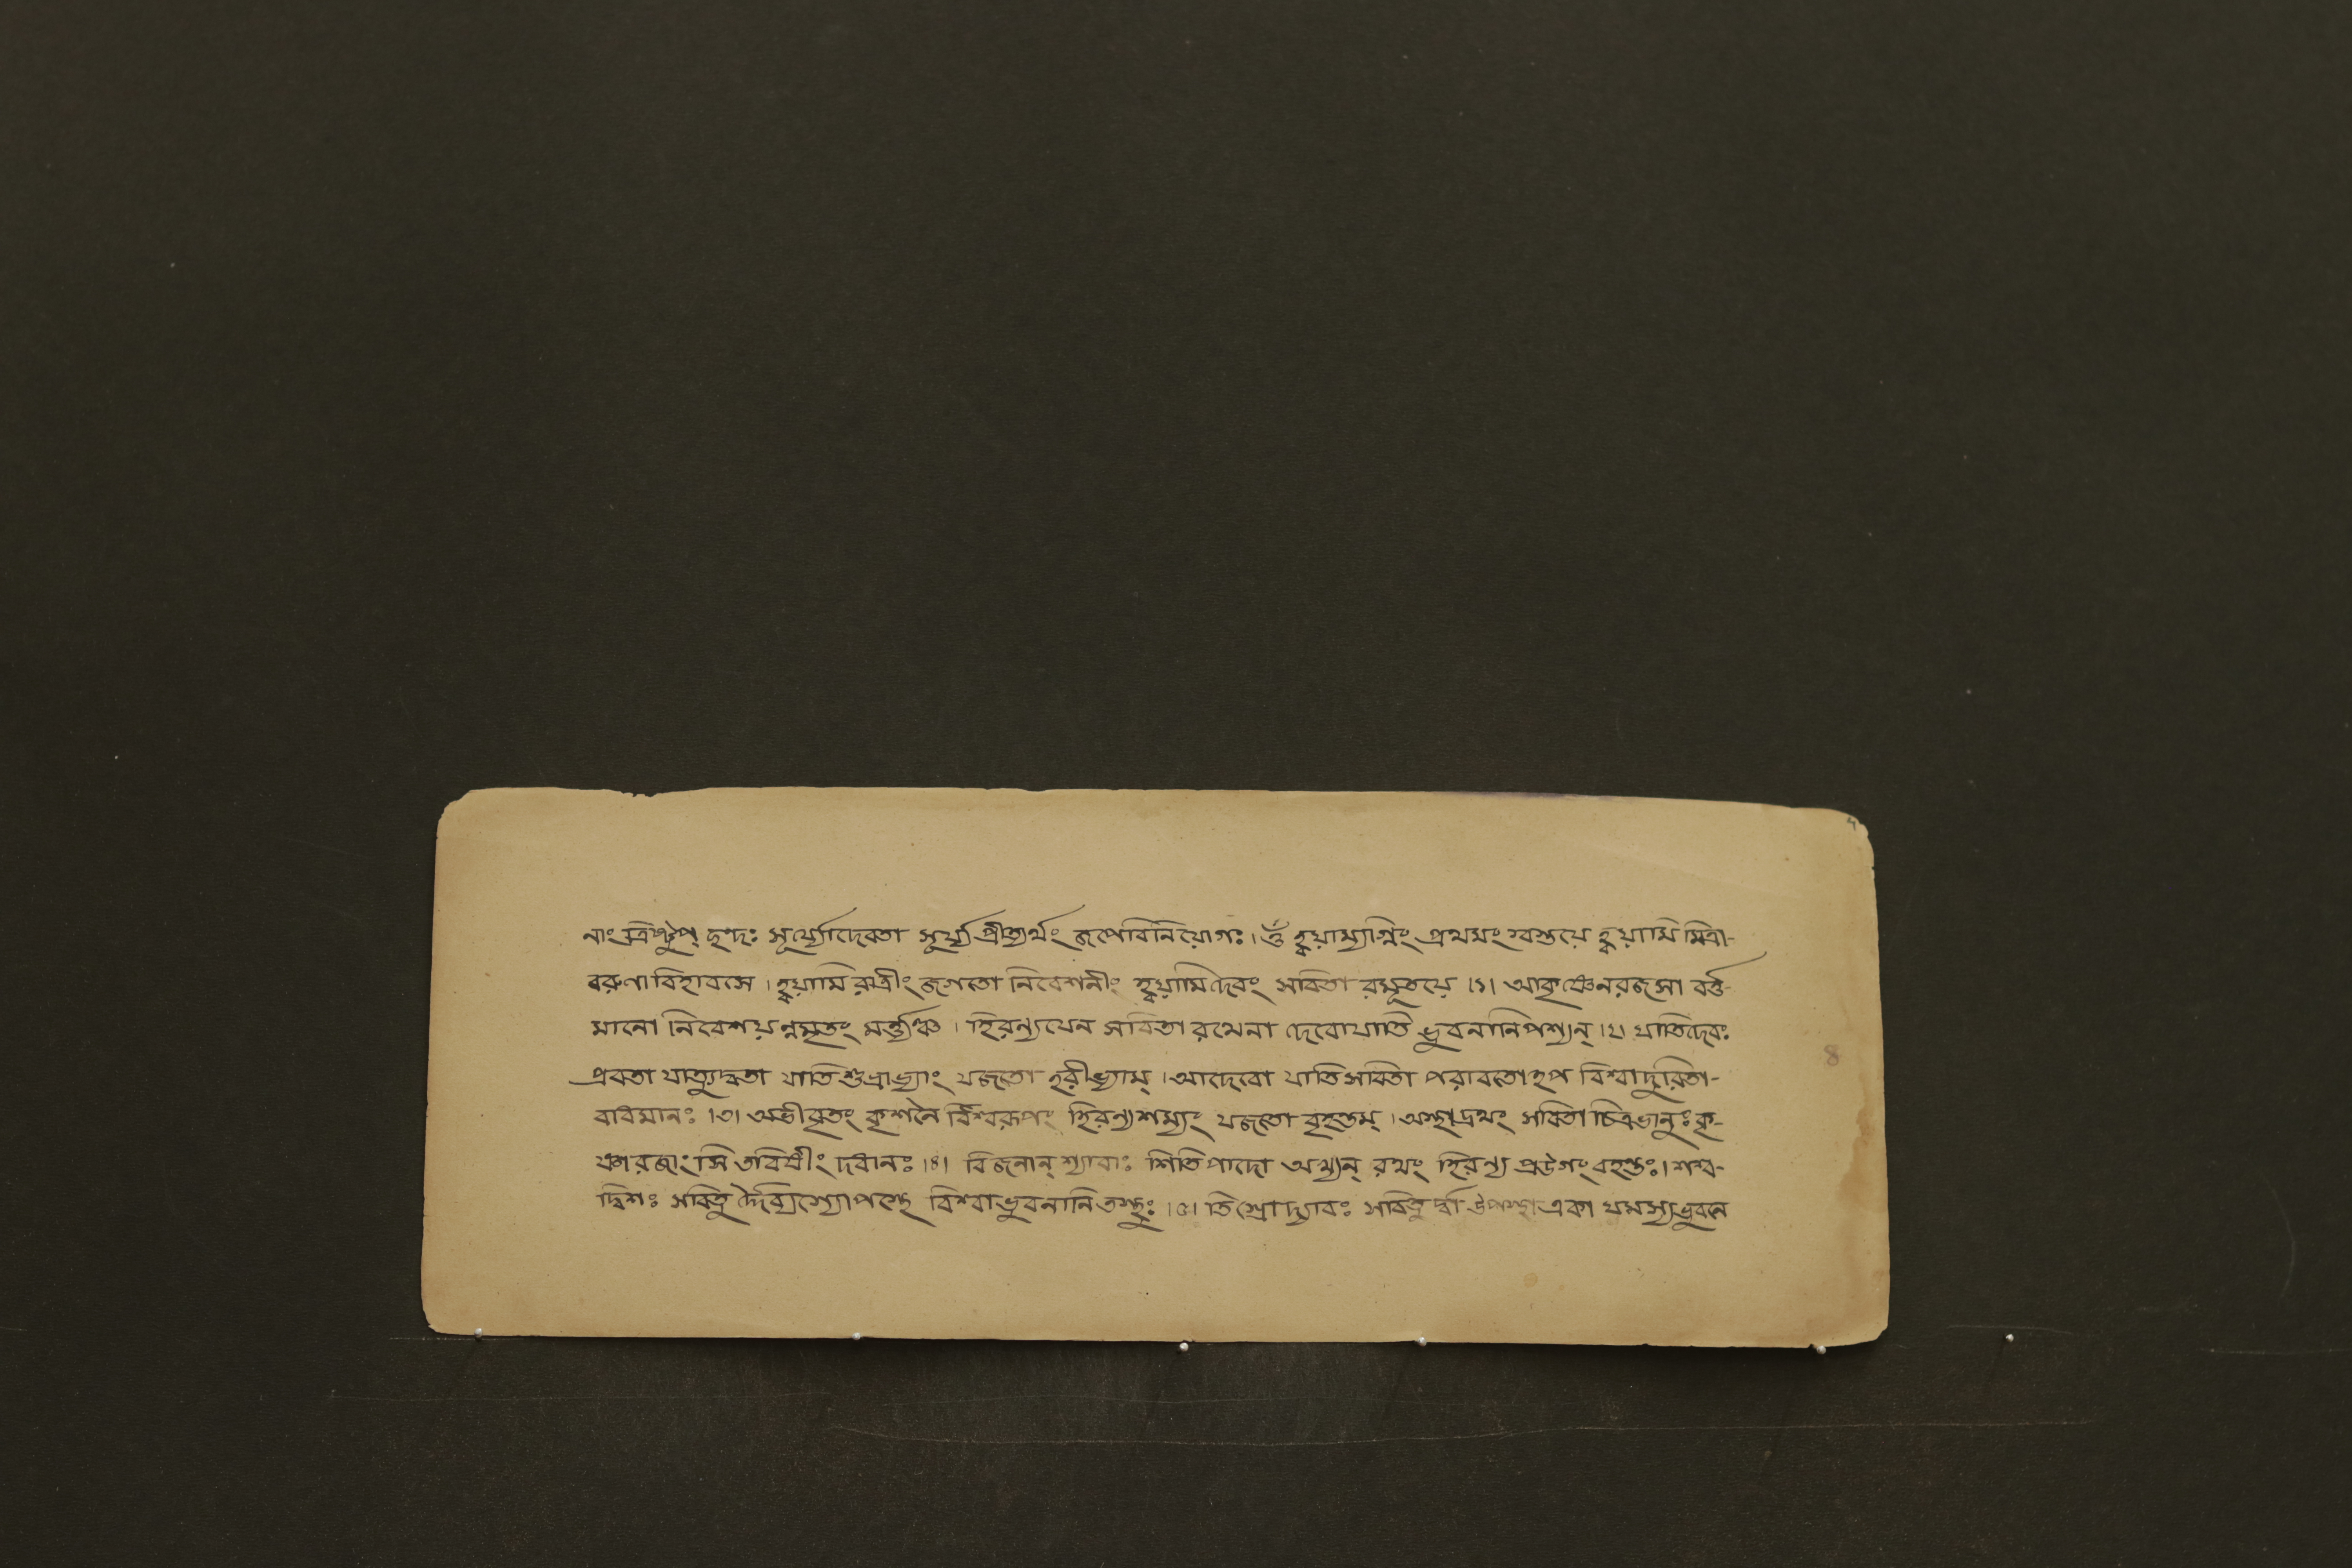 নাং ত্রিষ্টুপ্ ছন্দঃ সূর্য্যোদেবতা সূর্য্যপ্রীত্যর্থং জপেবিনিয়োগঃ। ওঁ হ্বয়াম্যাগ্নিং প্রথমং স্বস্তয়ে হ্বয়ামি মিত্রা-
বরুণাবিহাবসে। হ্বয়ামি রাত্রীং জগতো নিবেশনীং হ্বয়ামিদেবং সবিতা রমূতয়ে।১। আকৃষ্ণেনরজসা বর্ত্ত-
মানো নিবেশয়ন্নমৃতং মর্ত্ত্যঞ্চ। হিরন্যযেন সবিতা রথেনা দেবোযাতি ভুবনানিপশ্যন্।২। যাতিদেবঃ
প্রবতা যাত্যুদ্বতা যাতিশুভ্রাভ্যাং যজতো হরীভ্যাম্। আদেবো যাতিসবিতা পরাবতোহপ বিশ্বাদুরিতা-
বাধমানঃ।৩। অভীবৃতং কৃশনৈ র্বিশ্বরূপং হিরন্যশম্যং যজতো বৃহন্তম্। অস্থাদ্রথং সবিতা চিত্রভানুঃ কৃ-
ষ্ণারজাংসি তবিষীং দধানঃ।৪। বিজনান্ শ্যাবাঃ শিতিপাদো অখ্যন্ রথং হিরন্য প্রউগং বহন্তঃ। শশ্ব-
দ্বিশঃ সবিতু র্দৈব্যিস্যোপস্থে বিশ্বাভুবনানি তস্থুঃ।৫। তিস্রোদ্যাবঃ সবিতু র্দ্বা উপস্থা একা যমস্যভুবনে
8